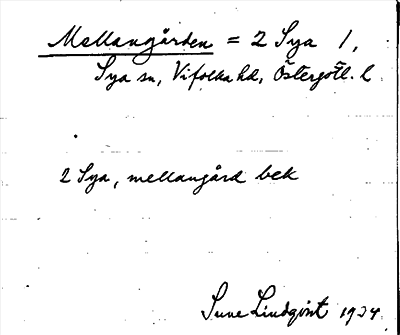 Mellangården = 2 Sya 1,
Sya sn, Vifolka hd, Östergötl. l.
2 Sya, mellangård bek
Sune Lindqvist 1924